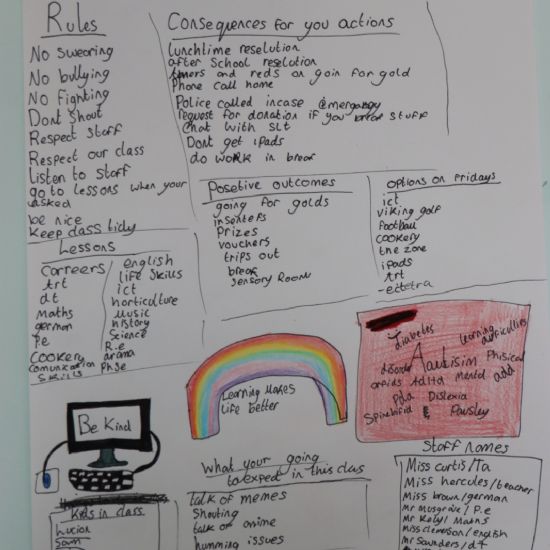 Rules
No swearing
No bullying
No Fighting
Dont shout
Respect staff
Respect our class
Listen to staff
go to lessons when your
asked
be nice
keep class tidy
Consequences for you actions
lunchtime reselution
after School reselution
and reds on goin for gold
Phone call home
Police called incase
request for donation if you break stuff
Chat with SLT
Dont get iPads
do work in break
Posetive outcomes
going for golds
insentefs
Prizes
vouchers
trips out
break
sensory Room
options on Fridays
ict
viking golf
football
cookery
the zone
iPads
Art
- ectetra
Lessons
Carreers
Art
dt
maths
german
P.e
Cookery
Comunication
Skills
english
life skills
ict
horticulture
Music
history
Science
R.e
drama
Phse
Learning Makes
life better
diabetes
learning
Aautisim Phisical
disorder
Adhd mental add
pda Dislexia
Paisley
Be Kind
Kids in class
What your going
to expect in this class
talk of memes
Shouting
talk of anime
humming issues
Staff names
Miss curtis/Ta
Miss hercules/teacher
Miss brown/german
Mr musgrave/P.e
Mr Kelly/Maths
Miss clemerson/english
Mr Saunders/dt